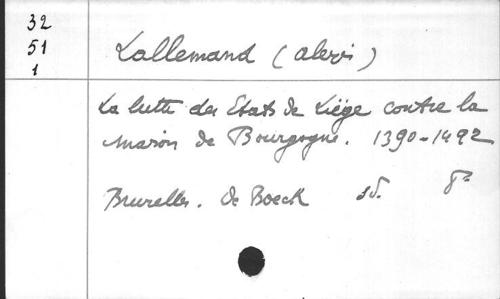 32
51
1
Lallemand (Alexis)
La lutte des Etats de Liège contre la
maison de Bourgogne. 1390-1492
Bruxelles. De Boeck sd. 8°